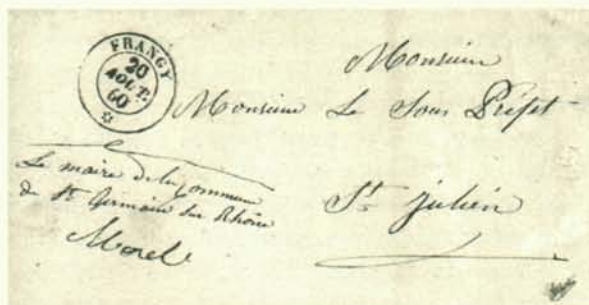 FRANGY
20
AOUT.
60
Monsieur
Monsieur Le Sous Préfet
St Julien
Le maire de la Commune
de St Germain sur Rhône
Morel